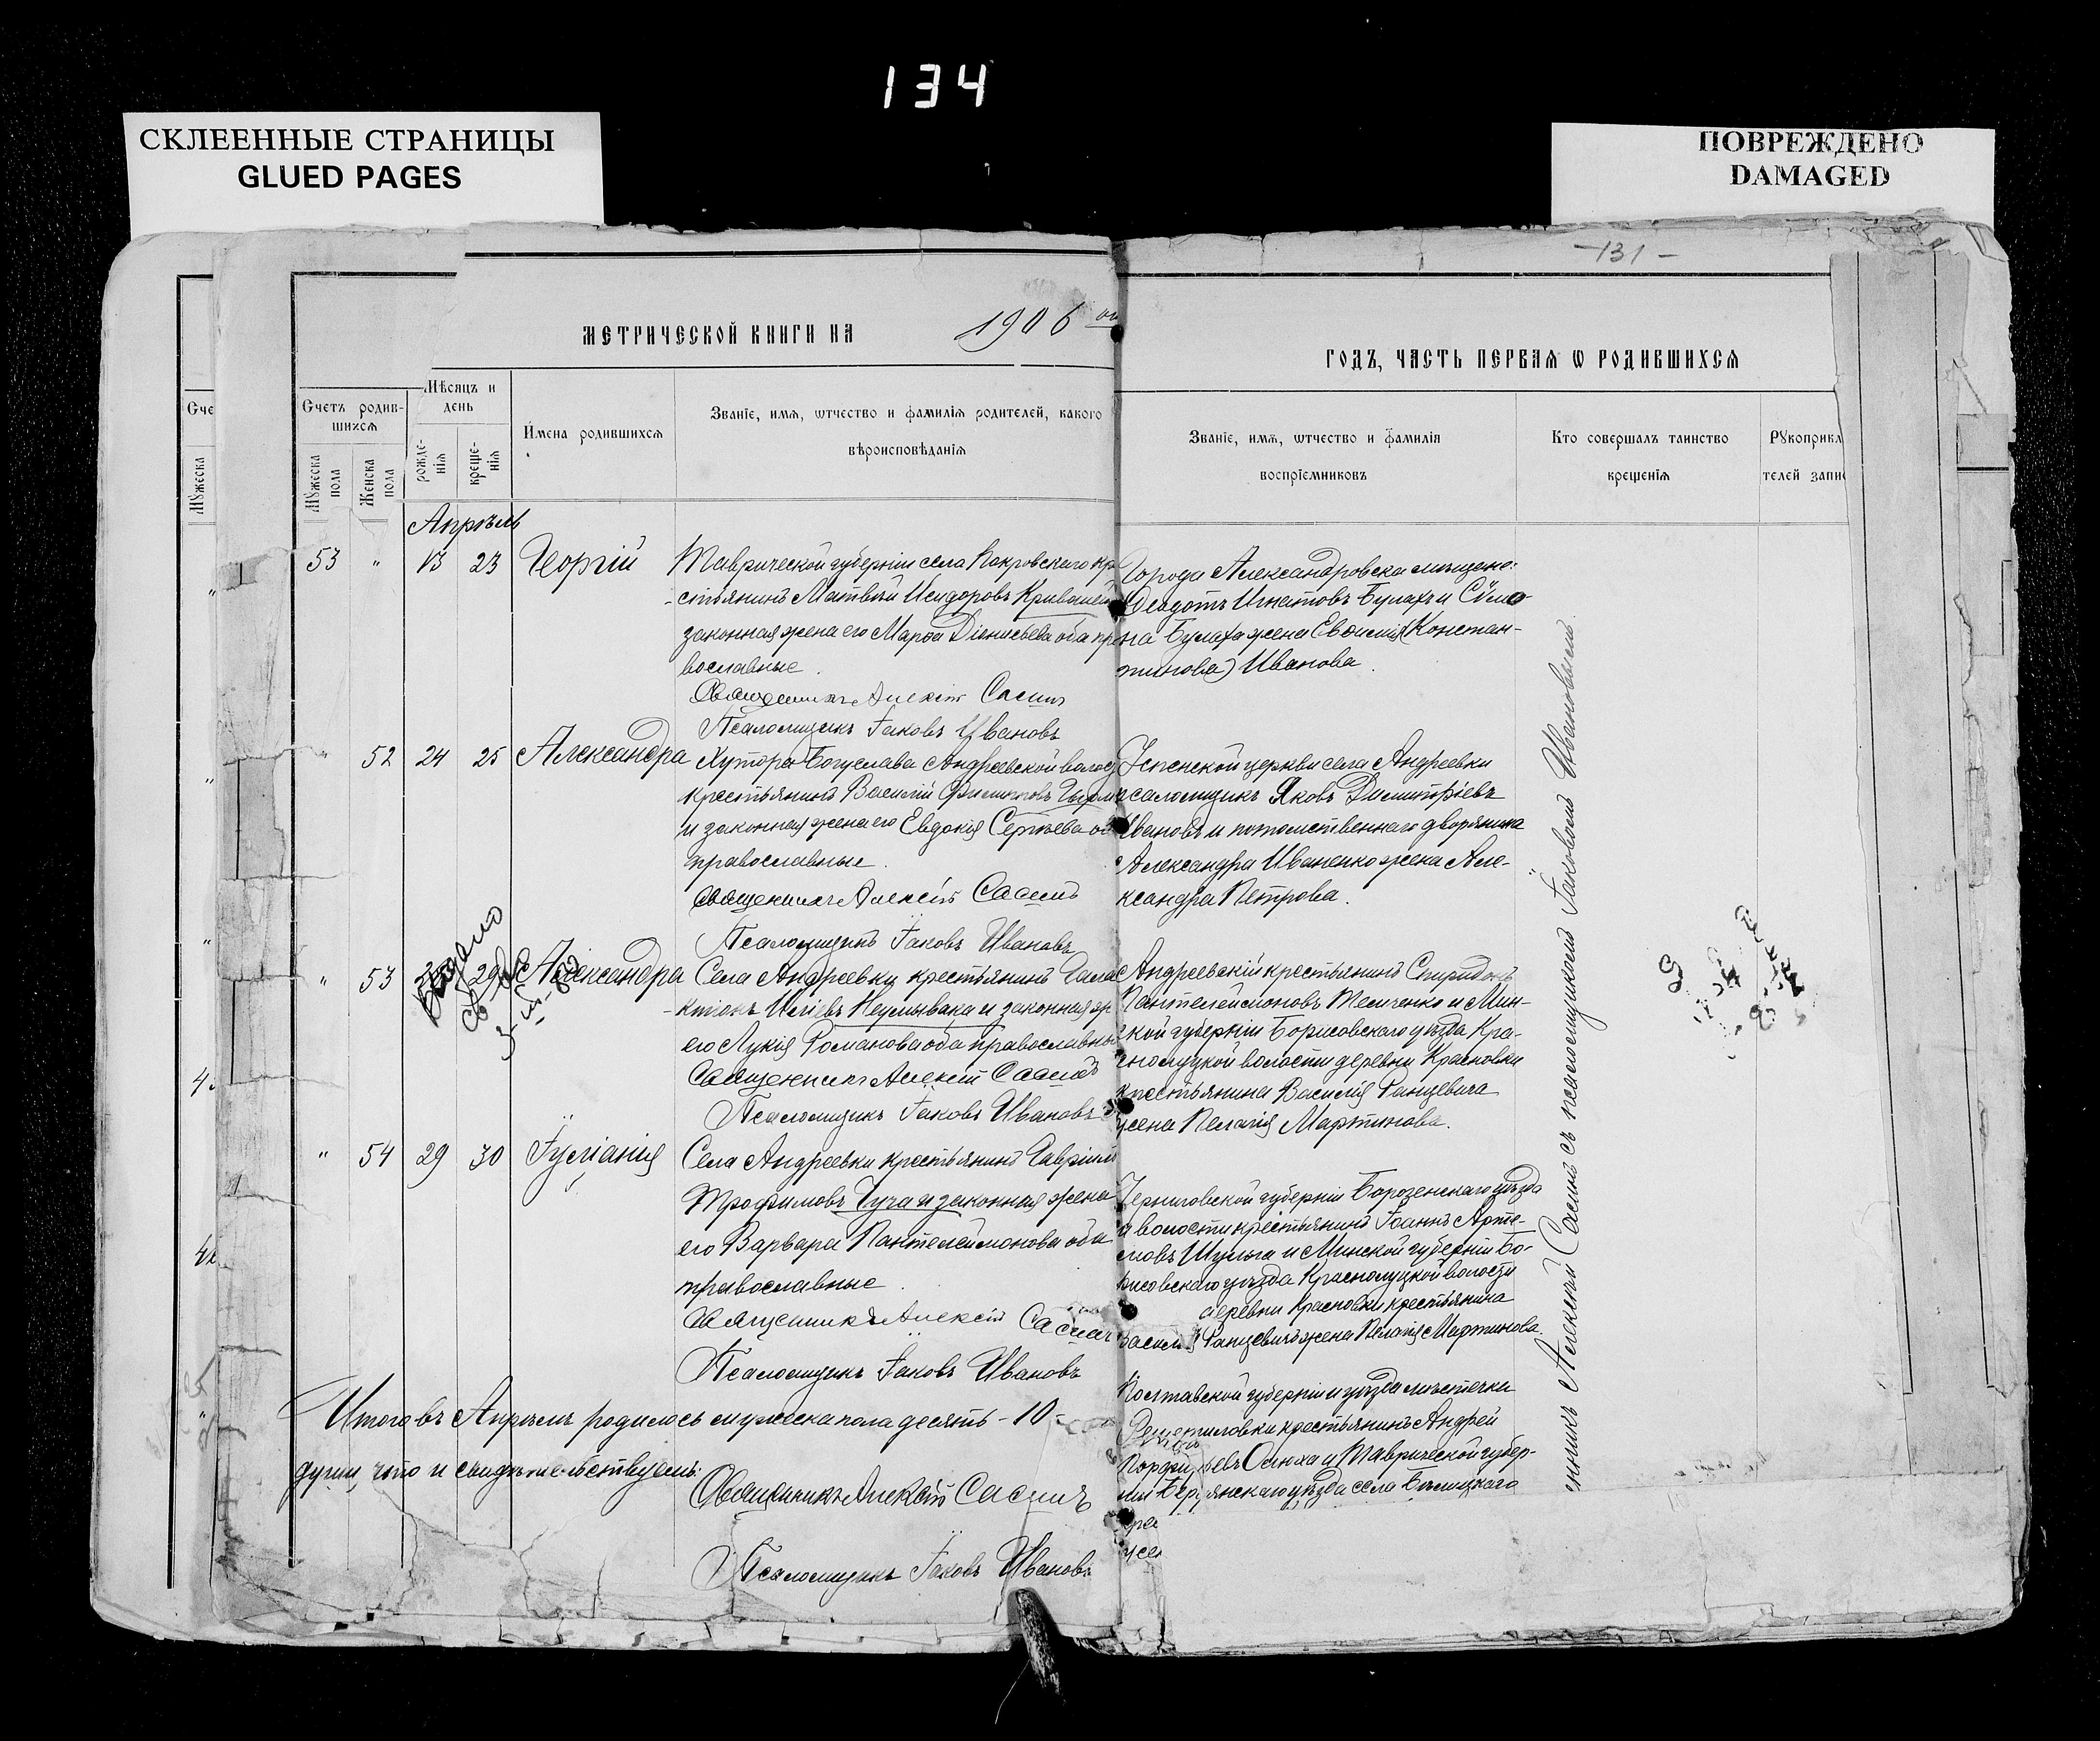 134
СКЛЕЕННЫЕ СТРАНИЦЫ
GLUED PAGES
ПОВРЕЖДЕНО
DAMAGED
-131-
МЕТРИЧЕСКОЙ КНИГИ НА 1906
ГОДЪ, ЧАСТЬ ПЕРВАЯ Ѡ РОДИВШИХСЯ
Счетъ родив-
шихся
Мꙋжеска пола
Женска пола
Мѣсяцъ и
день
рожде-
нія
креще-
нія
Имена родившихся
Званіе, имя, ѡтчество и фамилія родителей, какого
вѣроисповѣданія
Званіе, имя, ѡтчество и фамилія
воспріемниковъ
Кто совершалъ таинство
крещенія
Рꙋкоприкл
телей запис
Сче
Мꙋжеска
Апрѣль
53 " 13 23 Георгій
Таврической губерніи села Покровскаго кре
-стьянинъ Матвѣй Исидоровъ
законная жена его Марѳа Діонисьева оба пра
вославные.
Священникъ Алексій
Псаломщикъ Іаковъ Ивановъ
Города Александровска мѣщане:
Ѳеодотъ Игнатовъ Булахъ и
на Булаха жена Евѳимія (Констан-
тинова) Иванова.
" 52 24 25 Александра
Хутора Богуслава Андреевской волос
крестьянинъ Василій
и законная жена его Евдокія Сергѣева об
православные.
Священникъ Алексій
Псаломщикъ Іаковъ Ивановъ
Успенской церкви села Андреевки
псаломщикъ Яковъ Димитріевъ
Ивановъ и потомственнаго дворянина
Александра Иваненко жена Але-
ксандра Петрова.
" 53 29 Александра
Села Андреевки крестьянинъ Гала
-ктіонъ Иліевъ Неумывака и законная ж
его Лукія Романова оба православны
Священникъ Алексій
Псаломщикъ Іаковъ Ивановъ
Андреевскій крестьянинъ Спиридонъ
Пантелеймоновъ Теличенко и Мин-
ской губерніи Борисовскаго уѣзда Кра-
снолуцкой волости деревни Красновки
крестьянина Василія Ганцевича
жена Пелагія Мартинова.
" 54 29 30 Іуліанія
Села Андреевки крестьянинъ Гавріилъ
Трофимовъ Чуча и законная жена
его Варвара Пантелеймонова оба
православные.
Священникъ Алексій
Псаломщикъ Іаковъ Ивановъ
Черниговской губерніи Борозенскаго уѣзда
и волости крестьянинъ Іоаннъ Арте-
мовъ Шульга и Минской губерніи Бо-
рисовскаго уѣзда Краснолуцкой волости
деревни Красновки крестьянина
Ганцевича жена Пелагія Мартинова.
Итого въ Апрѣлѣ родилось мужеска пола десять -10-
души что и свидѣтельствуемъ:
Священникъ Алексій
Псаломщикъ Іаковъ Ивановъ
Полтавской губерніи и уѣзда мѣстечка
Решетиловки крестьянинъ Андрей
и Таврической губер-
ніи Бердянскаго уѣзда села
Алексій съ псаломщикомъ Іаковомъ Ивановымъ